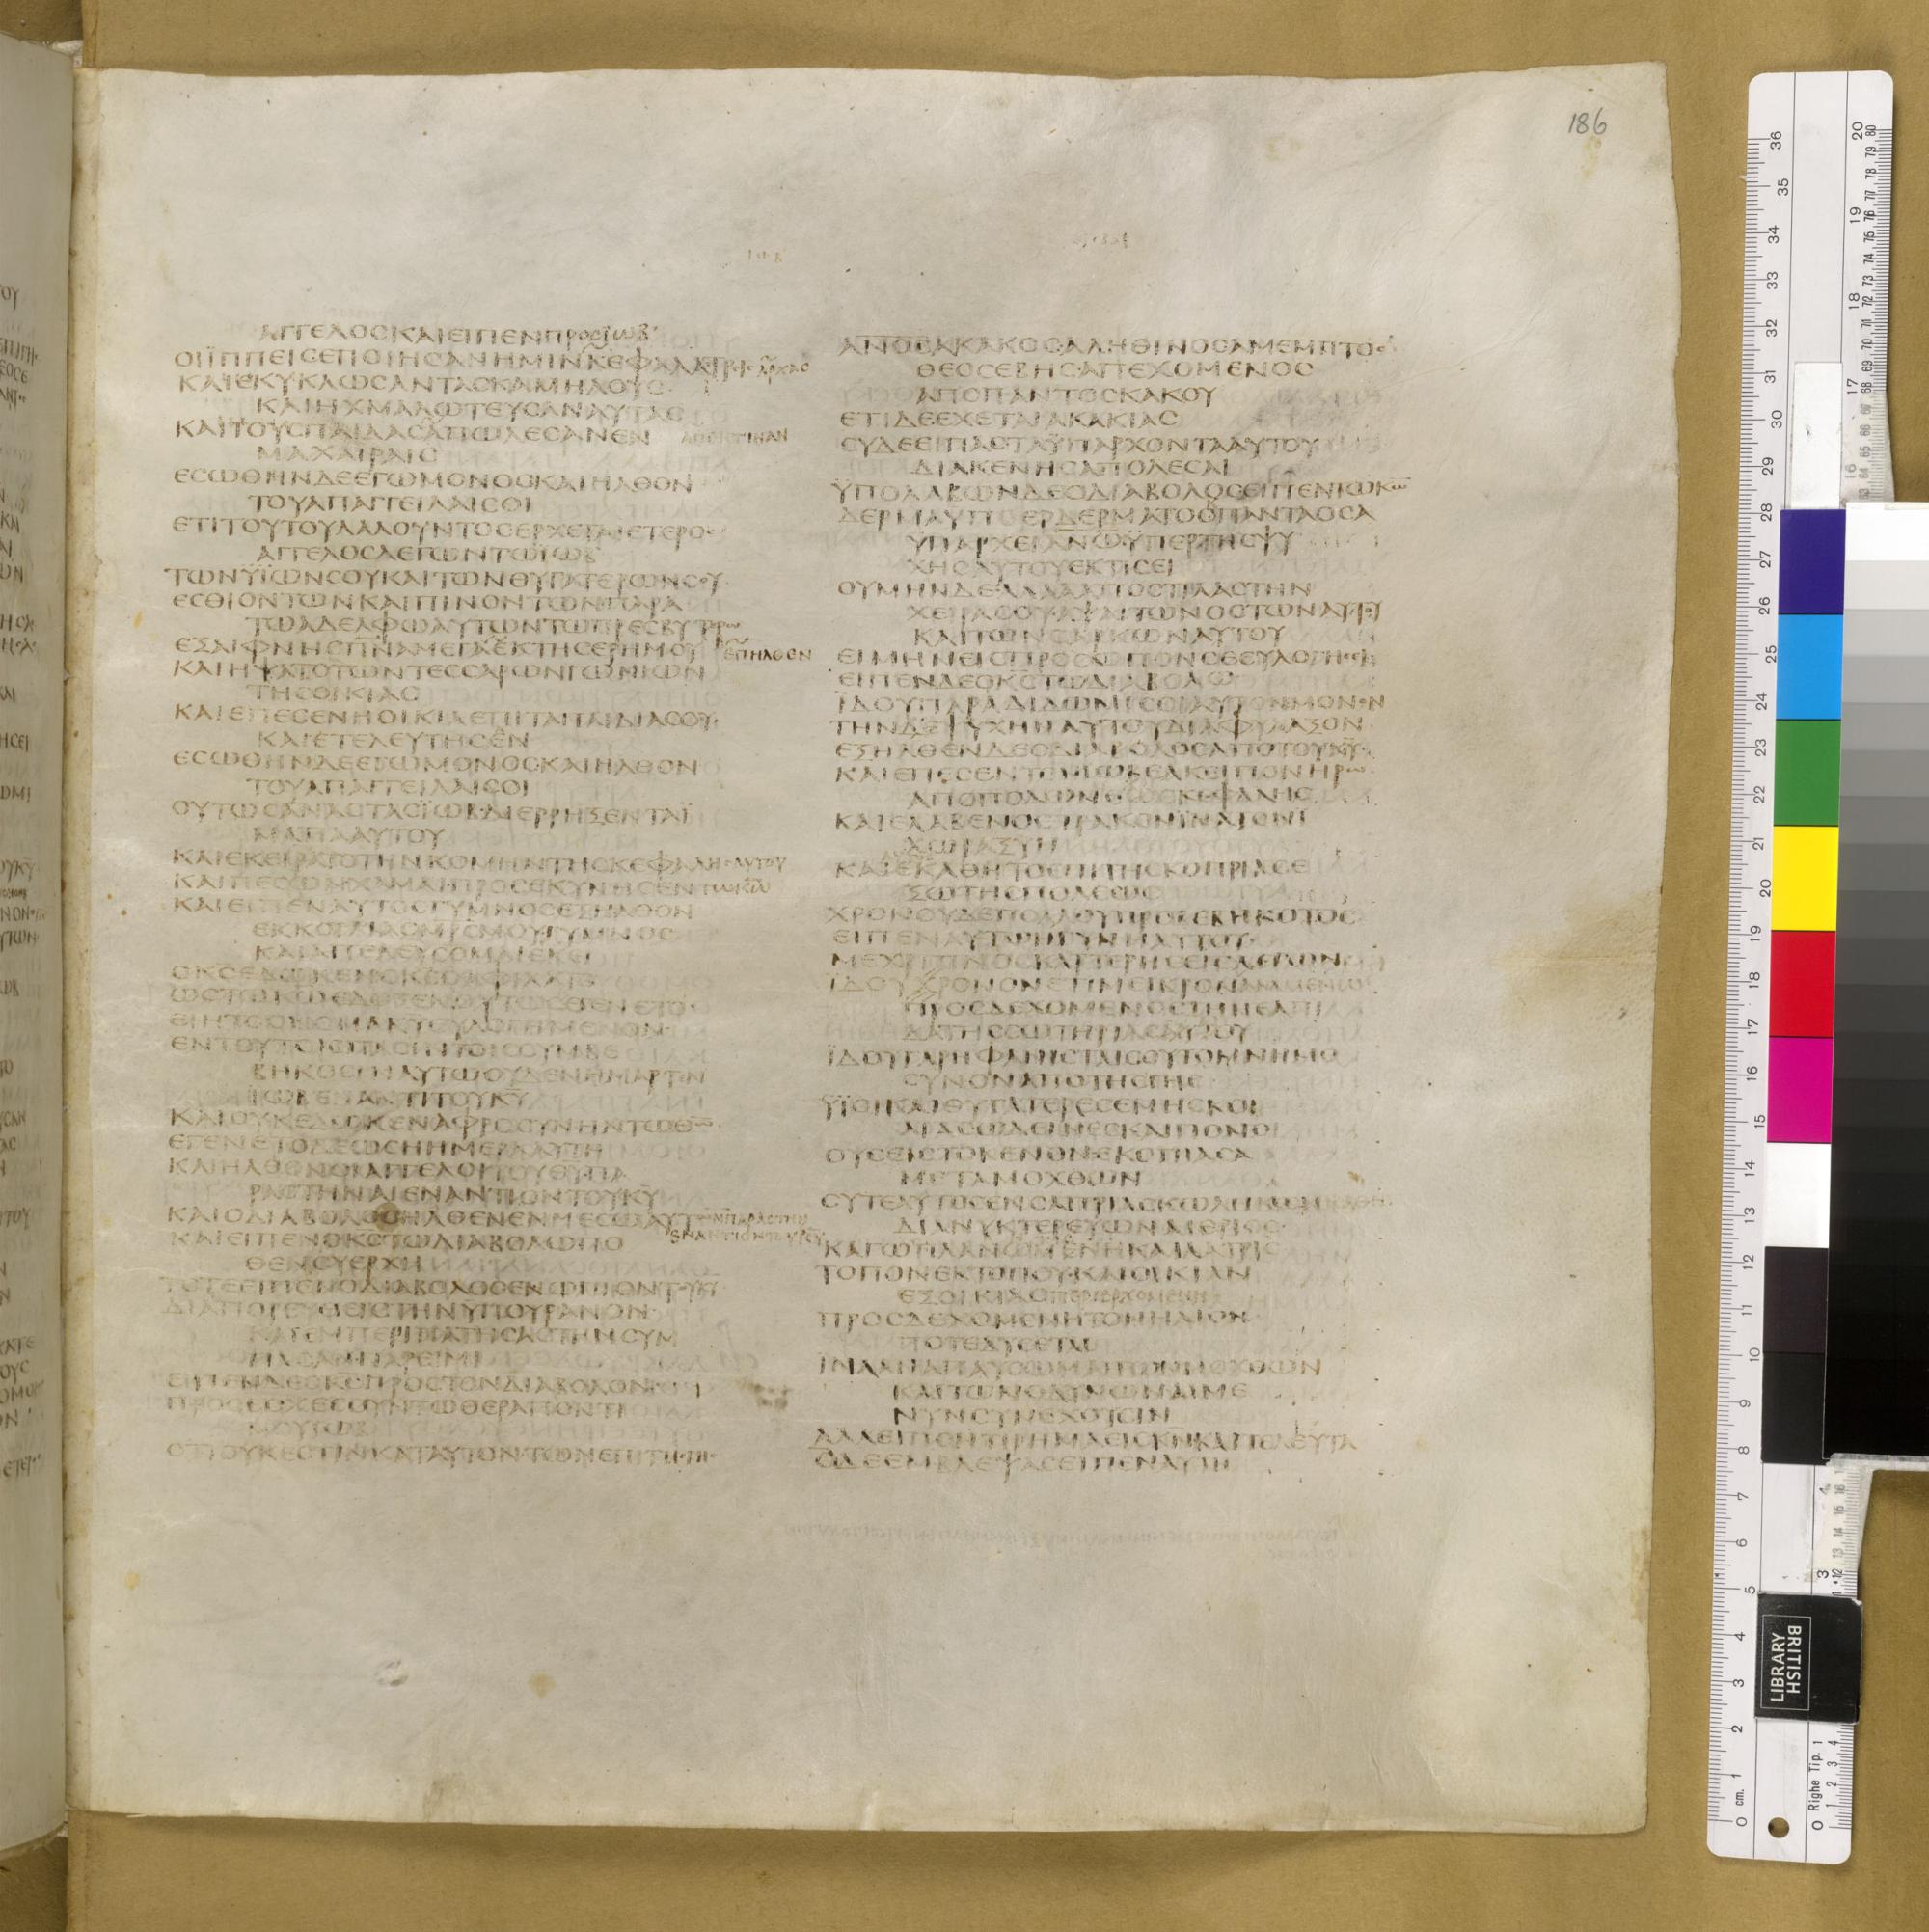 186
ΑΓΓΕΛΟΣ ΚΑΙ ΕΙΠΕΝ ΠΡΟΣ ΪΩΒ
ΟΙ ΪΠΠΕΙΣ ΕΠΟΙΗΣΑΝ ΗΜΙΝ ΚΕΦΑΛΑΣ ΑΡΧΑΣ
ΚΑΙ ΕΚΥΚΛΩΣΑΝ ΤΑΣ ΚΑΜΗΛΟΥΣ
ΚΑΙ ΗΧΜΑΛΩΤΕΥΣΑΝ ΑΥΤΑΣ
ΚΑΙ ΤΟΥΣ ΠΑΙΔΑΣ ΑΠΩΛΕΣΑΝ ΕΝ ΑΠΕΚΤΙΝΑΝ
ΜΑΧΑΙΡΑΙΣ
ΕΣΩΘΗΝ ΔΕ ΕΓΩ ΜΟΝΟΣ ΚΑΙ ΗΛΘΟΝ
ΤΟΥ ΑΠΑΓΓΕΙΛΑΙ ΣΟΙ
ΕΤΙ ΤΟΥΤΟΥ ΛΑΛΟΥΝΤΟΣ ΕΡΧΕΤΑΙ ΕΤΕΡΟΣ
ΑΓΓΕΛΟΣ ΛΕΓΩΝ ΤΩ ΪΩΒ
ΤΩΝ ΫΪΩΝ ΣΟΥ ΚΑΙ ΤΩΝ ΘΥΓΑΤΕΡΩΝ ΣΟΥ
ΕΣΘΙΟΝΤΩΝ ΚΑΙ ΠΙΝΟΝΤΩΝ ΠΑΡΑ
ΤΩ ΑΔΕΛΦΩ ΑΥΤΩΝ ΤΩ ΠΡΕΣΒΥΤΕΡΩ
ΕΞΑΙΦΝΗΣ ΠΝΑ ΜΕΓΑ ΕΚ ΤΗΣ ΕΡΗΜΟΥ ΕΠΗΛΘΕΝ
ΚΑΙ ΗΨΑΤΟ ΤΩΝ ΤΕΣΣΑΡΩΝ ΓΩΝΙΩΝ
ΤΗΣ ΟΙΚΙΑΣ
ΚΑΙ ΕΠΕΣΕΝ Η ΟΙΚΙΑ ΕΠΙ ΤΑ ΠΑΙΔΙΑ ΣΟΥ
ΚΑΙ ΕΤΕΛΕΥΤΗΣΕΝ
ΕΣΩΘΗΝ ΔΕ ΕΓΩ ΜΟΝΟΣ ΚΑΙ ΗΛΘΟΝ
ΤΟΥ ΑΠΑΓΓΕΙΛΑΙ ΣΟΙ
ΟΥΤΩΣ ΑΝΑΣΤΑΣ ΪΩΒ ΔΙΕΡΡΗΞΕΝ ΤΑ Ϊ
ΜΑΤΙΑ ΑΥΤΟΥ
ΚΑΙ ΕΚΕΙΡΑΤΟ ΤΗΝ ΚΟΜΗΝ ΤΗΣ ΚΕΦΑΛΗΣ ΑΥΤΟΥ
ΚΑΙ ΠΕΣΩΝ ΧΑΜΑΙ ΠΡΟΣΕΚΥΝΗΣΕΝ ΤΩ ΚΩ
ΚΑΙ ΕΙΠΕΝ ΑΥΤΟΣ ΓΥΜΝΟΣ ΕΞΗΛΘΟΝ
ΕΚ ΚΟΙΛΙΑΣ ΜΡΣ ΜΟΥ ΓΥΜΝΟΣ
ΚΑΙ ΑΠΕΛΕΥΣΟΜΑΙ ΕΚΕΙ
Ο ΚΣ ΕΔΩΚΕΝ Ο ΚΣ ΑΦΙΛΑΤΟ
ΩΣ ΤΩ ΚΩ ΕΔΟΞΕΝ ΟΥΤΩΣ ΕΓΕΝΕΤΟ
ΕΙΗ ΤΟ ΟΝΟΜΑ ΚΥ ΕΥΛΟΓΗΜΕΝΟΝ
ΕΝ ΤΟΥΤΟΙΣ ΠΑΣΙΝ ΤΟΙΣ ΣΥΜΒΕ
ΒΗΚΟΣΙΝ ΑΥΤΩ ΟΥΔΕΝ ΗΜΑΡΤΕΝ
ΪΩΒ ΕΝΑΝΤΙ ΤΟΥ ΚΥ
ΚΑΙ ΟΥΚ ΕΔΩΚΕΝ ΑΦΡΟΣΥΝΗΝ ΤΩ ΘΩ
ΕΓΕΝΕΤΟ ΔΕ ΩΣ Η ΗΜΕΡΑ ΑΥΤΗ
ΚΑΙ ΗΛΘΟΝ ΟΙ ΑΓΓΕΛΟΙ ΤΟΥ ΘΥ ΠΑ
ΡΑΣΤΗΝΑΙ ΕΝΑΝΤΙΟΝ ΤΟΥ ΚΥ
ΚΑΙ Ο ΔΙΑΒΟΛΟΣ ΗΛΘΕΝ ΕΝ ΜΕΣΩ ΑΥΤΩΝ ΠΑΡΑΣΤΗΝΑΙ
ΕΝΑΝΤΙΟΝ ΤΟΥ ΚΥ
ΚΑΙ ΕΙΠΕΝ Ο ΚΣ ΤΩ ΔΙΑΒΟΛΩ ΠΟ
ΘΕΝ ΣΥ ΕΡΧΗ
ΤΟΤΕ ΕΙΠΕΝ Ο ΔΙΑΒΟΛΟΣ ΕΝΩΠΙΟΝ ΤΟΥ ΚΥ
ΔΙΑΠΟΡΕΥΘΕΙΣ ΤΗΝ ΥΠ ΟΥΡΑΝΟΝ
ΚΑΙ ΕΜΠΕΡΙΠΑΤΗΣΑΣ ΤΗΝ ΣΥΜ
ΠΑΣΑΝ ΠΑΡΕΙΜΙ
ΕΙΠΕΝ ΔΕ Ο ΚΣ ΠΡΟΣ ΤΟΝ ΔΙΑΒΟΛΟΝ
ΠΡΟΣΕΣΧΕΣ ΟΥΝ ΤΩ ΘΕΡΑΠΟΝΤΙ
ΜΟΥ ΪΩΒ
ΟΤΙ ΟΥΚ ΕΣΤΙΝ ΚΑΤ ΑΥΤΟΝ ΤΩΝ ΕΠΙ ΤΗΣ ΓΗΣ
ΑΝΟΣ ΑΚΑΚΟΣ ΑΛΗΘΙΝΟΣ ΑΜΕΜΠΤΟΣ
ΘΕΟΣΕΒΗΣ ΑΠΕΧΟΜΕΝΟΣ
ΑΠΟ ΠΑΝΤΟΣ ΚΑΚΟΥ
ΕΤΙ ΔΕ ΕΧΕΤΑΙ ΑΚΑΚΙΑΣ
ΣΥ ΔΕ ΕΙΠΑΣ ΤΑ ΫΠΑΡΧΟΝΤΑ ΑΥΤΟΥ
ΔΙΑ ΚΕΝΗΣ ΑΠΟΛΕΣΑΙ
ΫΠΟΛΑΒΩΝ ΔΕ Ο ΔΙΑΒΟΛΟΣ ΕΙΠΕΝ ΤΩ ΚΩ
ΔΕΡΜΑ ΥΠΕΡ ΔΕΡΜΑΤΟΣ ΠΑΝΤΑ ΟΣΑ
ΥΠΑΡΧΕΙ ΑΝΩ ΫΠΕΡ ΤΗΣ ΨΥ
ΧΗΣ ΑΥΤΟΥ ΕΚΤΙΣΕΙ
ΟΥ ΜΗΝ ΔΕ ΑΛΛΑ ΑΠΟΣΤΙΛΑΣ ΤΗΝ
ΧΕΙΡΑ ΣΟΥ ΑΨΑΙ ΤΩΝ ΟΣΤΩΝ ΑΥΤΟΥ
ΚΑΙ ΤΩΝ ΣΑΡΚΩΝ ΑΥΤΟΥ
ΕΙ ΜΗΝ ΕΙΣ ΠΡΟΣΩΠΟΝ ΣΕ ΕΥΛΟΓΗΣΕΙ
ΕΙΠΕΝ ΔΕ Ο ΚΣ ΤΩ ΔΙΑΒΟΛΩ
ΪΔΟΥ ΠΑΡΑΔΙΔΩΜΙ ΣΟΙ ΑΥΤΟΝ ΜΟΝΟΝ
ΤΗΝ ΔΕ ΨΥΧΗΝ ΑΥΤΟΥ ΔΙΑΦΥΛΑΞΟΝ
ΕΞΗΛΘΕΝ ΔΕ Ο ΔΙΑΒΟΛΟΣ ΑΠΟ ΤΟΥ ΚΥ
ΚΑΙ ΕΠΕΣΕΝ ΤΟΝ ΪΩΒ ΕΛΚΕΙ ΠΟΝΗΡΩ
ΑΠΟ ΠΟΔΩΝ ΕΩΣ ΚΕΦΑΛΗΣ
ΚΑΙ ΕΛΑΒΕΝ ΟΣΤΡΑΚΟΝ ΪΝΑ ΤΟΝ Ϊ
ΧΩΡΑ ΞΥΗ
ΚΑΙ ΕΚΑΘΗΤΟ ΕΠΙ ΤΗΣ ΚΟΠΡΙΑΣ Ε
ΞΩ ΤΗΣ ΠΟΛΕΩΣ
ΧΡΟΝΟΥ ΔΕ ΠΟΛΛΟΥ ΠΡΟΒΕΒΗΚΟΤΟΣ
ΕΙΠΕΝ ΑΥΤΩ Η ΓΥΝΗ ΑΥΤΟΥ
ΜΕΧΡΙ ΤΙΝΟΣ ΚΑΡΤΕΡΗΣΕΙΣ ΛΕΓΩΝ
ΪΔΟΥ ΧΡΟΝΟΝ ΕΤΙ ΜΕΙΚΡΟΝ ΑΝΑΜΕΝΩ
ΠΡΟΣΔΕΧΟΜΕΝΟΣ ΤΗΝ ΕΛΠΙ
ΔΑ ΤΗΣ ΣΩΤΗΡΙΑΣ ΑΥΤΟΥ
ΪΔΟΥ ΓΑΡ ΗΦΑΝΙΣΤΑΙ ΣΟΥ ΤΟ ΜΝΗΜΟ
ΣΥΝΟΝ ΑΠΟ ΤΗΣ ΓΗΣ
ΫΪΟΙ ΚΑΙ ΘΥΓΑΤΕΡΕΣ ΕΜΗΣ ΚΟΙ
ΛΙΑΣ ΩΔΕΙΝΕΣ ΚΑΙ ΠΟΝΟΙ
ΟΥΣ ΕΙΣ ΤΟ ΚΕΝΟΝ ΕΚΟΠΙΑΣΑ
ΜΕΤΑ ΜΟΧΘΩΝ
ΣΥ ΤΕ ΑΥΤΟΣ ΕΝ ΣΑΠΡΙΑ ΣΚΩΛΗΚΩΝ ΚΑΘΗ
ΔΙΑΝΥΚΤΕΡΕΥΩΝ ΑΙΘΡΙΟΣ
ΚΑΓΩ ΠΛΑΝΩΜΕΝΗ ΚΑΙ ΛΑΤΡΙΣ
ΤΟΠΟΝ ΕΚ ΤΟΠΟΥ ΚΑΙ ΟΙΚΙΑΝ
ΕΞ ΟΙΚΙΑΣ ΠΕΡΙΕΡΧΟΜΕΝΗ
ΠΡΟΣΔΕΧΟΜΕΝΗ ΤΟΝ ΗΛΙΟΝ
ΠΟΤΕ ΔΥΣΕΤΑΙ
ΪΝΑ ΑΝΑΠΑΥΣΩΜΑΙ ΤΩΝ ΜΟΧΘΩΝ
ΚΑΙ ΤΩΝ ΟΔΥΝΩΝ ΑΙ ΜΕ
ΝΥΝ ΣΥΝΕΧΟΥΣΙΝ
ΑΛΛΕ ΕΙΠΟΝ ΤΙ ΡΗΜΑ ΕΙΣ ΚΝ ΚΑΙ ΤΕΛΕΥΤΑ
Ο ΔΕ ΕΜΒΛΕΨΑΣ ΕΙΠΕΝ ΑΥΤΗ
BRITISH
LIBRARY